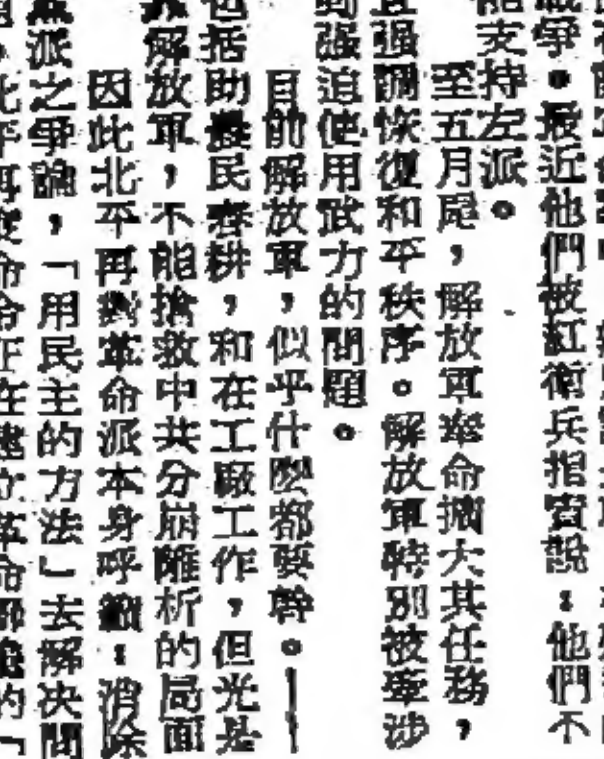 爭。最近他們被紅衛兵指責說：他們不
能支持左派。
至五月尾，解放軍奉命擴大其任務，
且强調恢復和平秩序。解放軍特別被牽涉
到强迫使用武力的問題。
目前解放軍，似乎什麽都要幹。——
包括助農民春耕，和在工廠工作，但光是
解放軍，不能搶救中共分崩離析的局面
因此北平再對革命派本身呼籲：消除
黨派之爭論，「用民主的方法」去解決問